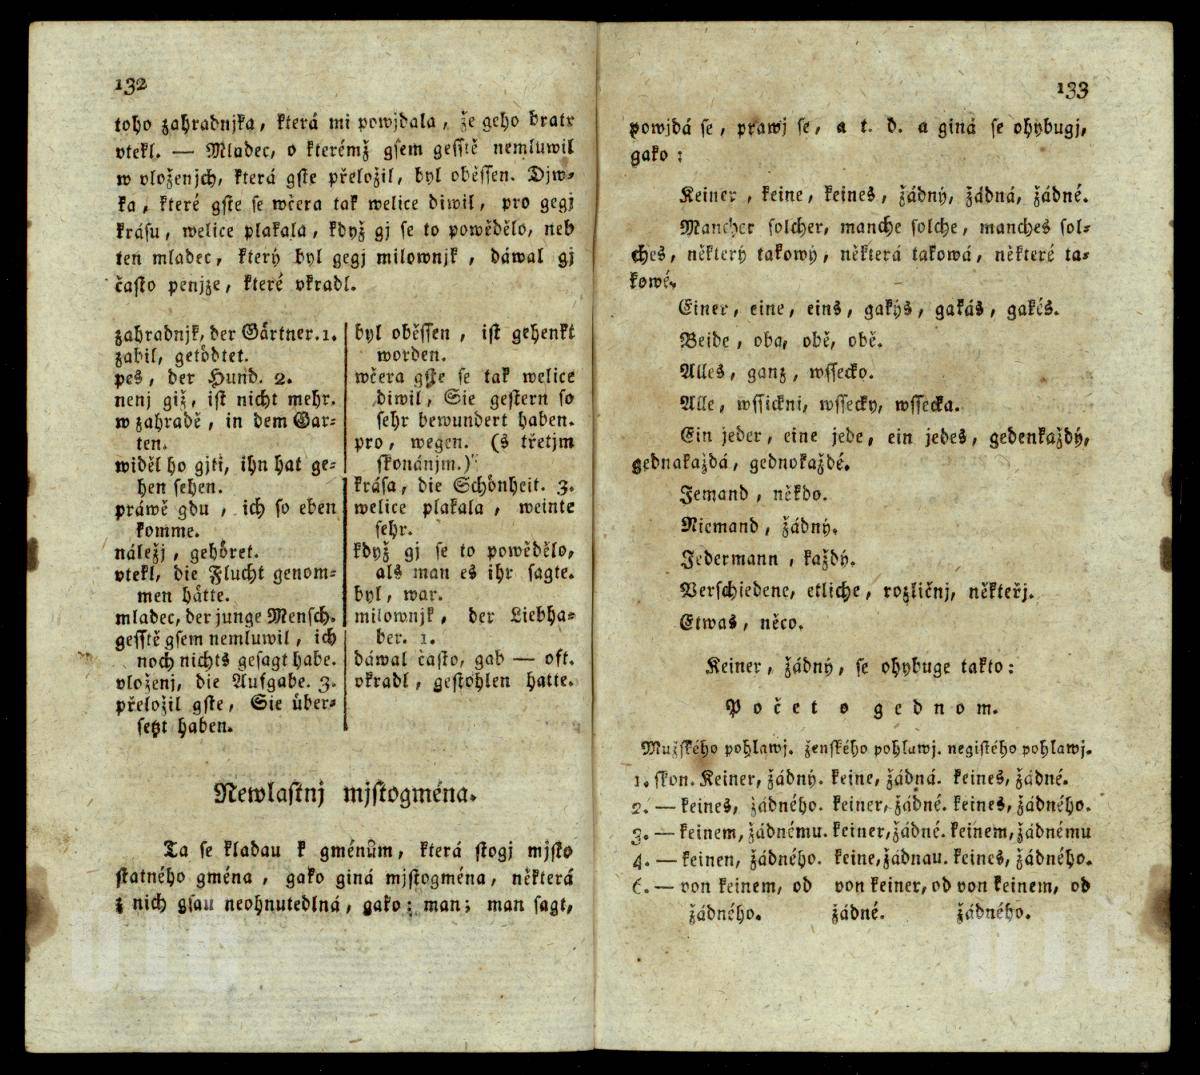 132
toho zahradnjka, která mi powjdala, že geho bratr
vtekl. — Mladec, o kterémž gsem gessstě nemluwil
w vloženjch, která gste přeložil, byl oběssen. Djw-
ka, které gste se wčera tak welice diwil, pro gegj
krásu, welice plakala, když gj se to powědělo, neb
ten mladec, který byl gegj milownjk, dáwal gj
často penjze, které vkradl.
zahradnjk, der Gärtner. 1.
zabil, getödtet.
pes, der Hund. 2.
nenj giž, ist nicht mehr.
w zahradě, in dem Gar-
ten.
widěl ho gjti, ihn hat ge-
hen sehen.
práwě gdu, ich so eben
komme.
náležj, gehöret.
vtekl, die Flucht genom-
men hätte.
mladec, der junge Mensch.
gesstě gsem nemluwil, ich
noch nichts gesagt habe.
vloženj, die Aufgabe. 3.
přeložil gste, Sie über-
setzt haben.
byl oběssen, ist gehenkt
worden.
wčera gste se tak welice
diwil, Sie gestern so
sehr bewundert haben.
pro, wegen. (s třetjm
skonánjm.)
krása, die Schönheit. 3.
welice plakala, weinte
sehr.
když gj se to powědělo,
als man es ihr sagte.
byl, war.
milownjk, der Liebha-
ber. 1.
dáwal často, gab — oft.
vkradl, gestohlen hatte.
Newlastnj mjstogména.
Ta se kladau k gménům, která stogj mjsto
statného gména, gako giná mjstogména, některá
z nich gsau neohnutedlná, gako: man; man sagt,
133
powjdá se, prawj se, a t. d. a giná se ohybugj,
gako:
Keiner, keine, keines, žádný, žádná, žádné.
Mancher solcher, manche solche, manches sol-
ches, některý takowý, některá takowá, některé ta-
kowé.
Einer, eine, eins, gakýs, gakás, gakés.
Beide, oba, obě, obě.
Alles, ganz, wssecko.
Alle, wssickni, wssecky, wssecka.
Ein jeder, eine jede, ein jedes, gedenkaždý,
gednakaždá, gednokaždé.
Jemand, někdo.
Niemand, žádný.
Jedermann, každý.
Verschiedene, etliche, rozličnj, někteřj.
Etwas, něco.
Keiner, žádný, se ohybuge takto:
Počet o gednom.
Mužského pohlawj. ženského pohlawj. negistého pohlawj.
1. skon. Keiner, žádný. keine, žádná. keines, žádné.
2. — keines, žádného. keiner, žádné. keines, žádného.
3. — keinem, žádnému. keiner, žádné. keinem, žádnému
4. — keinen, žádného. keine, žádnau. keines, žádného.
6. — von keinem, od von keiner, od von keinem, od
žádného. žádné. žádného.